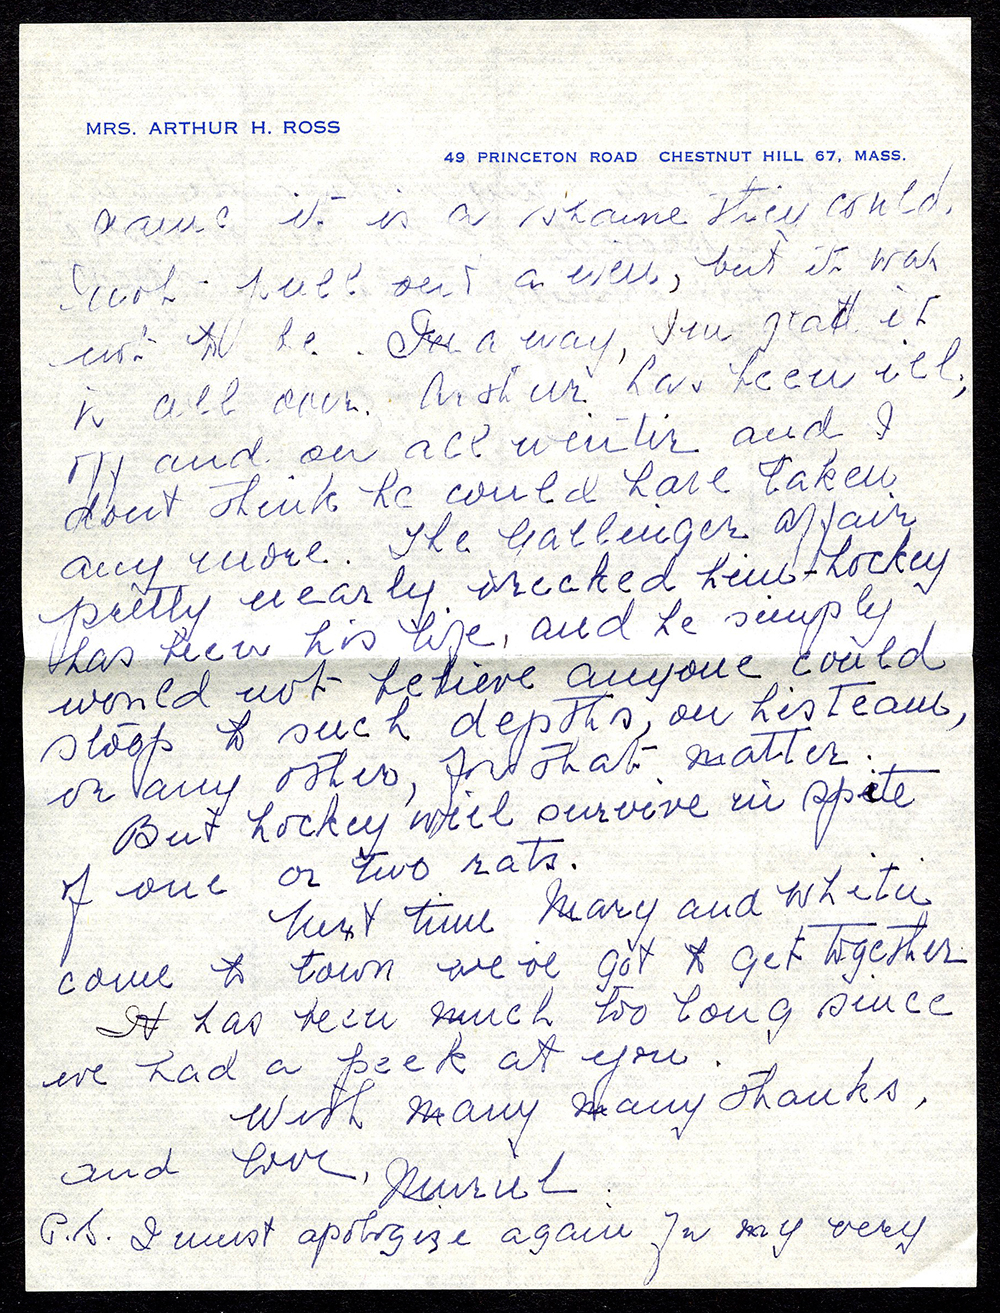 MRS. ARTHUR H. ROSS
49 PRINCETON ROAD CHESTNUT HILL 67, MASS.
it is a shame they could
not pull out a win, but it was
not to be. In a way, I'm glad it
is all over. Arthur has been ill,
off and on all winter and I
don't think he could have taken
any more. The Gallinger affair
pretty nearly wrecked him - hockey
has been his life, and he simply
would not believe anyone could
stoop to such depths, on his team,
or any other, for that matter.
But hockey will survive in spite
of one or two rats.
Next time Mary and Whitie
come to town we've got to get together
It has been much too long since
we had a peek at you.
With many many thanks,
and love, Muriel.
P.S. I must apologize again for my very